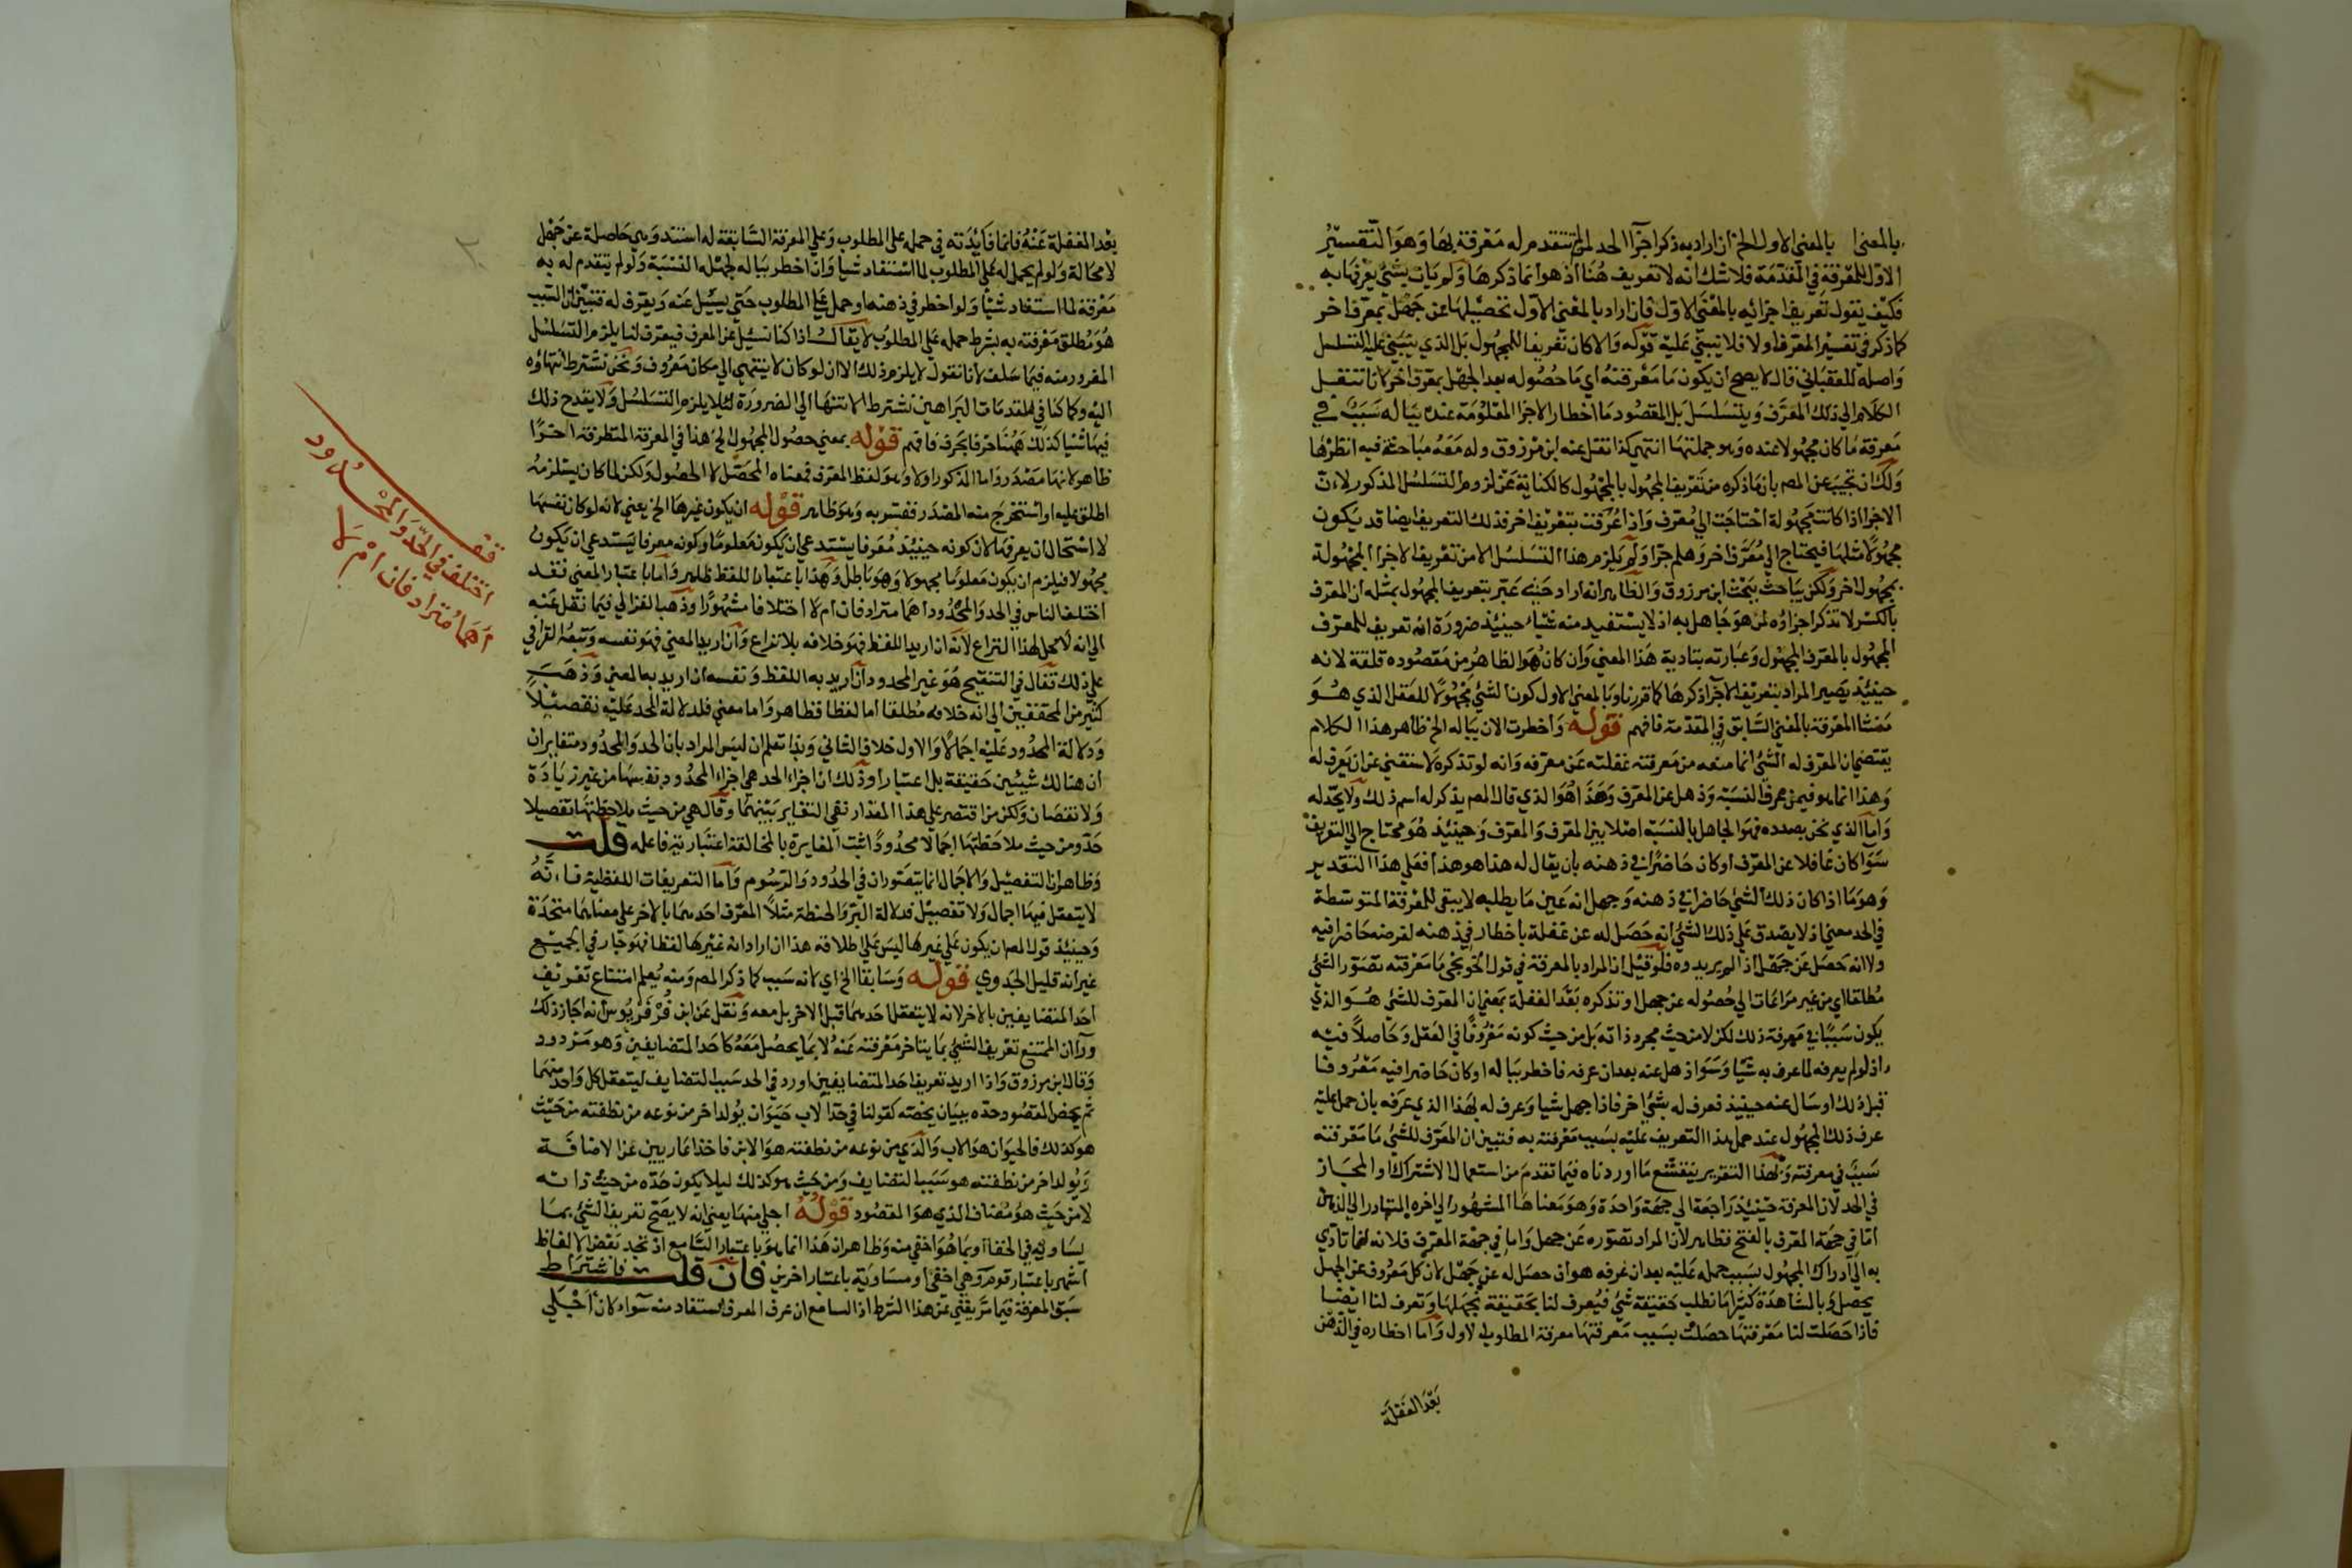 بالمعنى بالمعنى الاول الخ ان اراد به ذكر اجزآ الحد لمن تتقدم له معرفة بها وهو التفسير
الاول للمعرفة في المقدمة فلا شك انه لا تعريف هنا اذ هو انما ذكرها ولم يات بشئ يعرفها به
فكيف يقول تعريف اجزائه بالمعنى الاول فان اراد بالمعنى الاول تحصيلها عن جهل بمعرف اخر
كما ذكر في تفسير المعرف اولا فلا يبتنى عليه قوله والا كان تعريفا للمجهول بل الذي ينبني عليه التسلسل
واصله للعقباني قال لا يصح ان يكون ما معرفته اي ما حصوله بعد الجهل بمعرف اخر لانا ننقل
الكلام الى ذلك المعرف ويتسلسل بل المقصود ما اخطار الاجزا المعلومة عنده بباله سبب في
معرفة ما كان مجهولا عنده وهو جملتها انتهى كذا نقل عنه ابن مرزوق وله معه مباحثة فيه انظرها
ولك ان تجيب عن المص بان ما ذكره من تعريف المجهول بالمجهول كالكناية عن لزوم التسلسل المذكور لان
الاجزا اذا كانت مجهولة احتاجت الى معرف واذا عرفت بتعريف اخر فذلك التعريف ايضا قد يكون
مجهولا مثلها فيحتاج الى معرف اخر وهلم جرا ولم يلزم هذا التسلسل الا من تعريف الاجزا المجهولة
بمجهول اخر ولكن يباحث ببحث ابن مرزوق والظاهر انه اراد حيث عبر بتعريف المجهول بمثله ان المعرف
بالكسر لا تذكر اجزاؤه لمن هو جاهل به اذ لا يستفيد منه شيا حينئذ ضرورة انه تعريف للمعرف
المجهول بالمعرف المجهول وعبارته بتادية هذا المعنى وان كان هو الظاهر من مقصوده قلقة لانه
حينئذ يصير المراد بتعريف الاجزآ ذكرها كما قررنا وبالمعنى الاول كون الشئ مجهولا للعقل الذي هو
منشا المعرفة بالمعنى السابق في المقدمة فافهم قوله واخطرت الان بباله الخ ظاهر هذا الكلام
يقتضي ان المعرف له الشئ انما منعه من معرفته غفلته عن معرفه وانه لو تذكره لاستغنى عن ان يعرف له
وهذا انما هو فيمن عرف النسبة وذهل عن المعرف وهذا هو الذي قال المص يذكر له اسم ذلك ولا يحد له
واما الذي نحن بصدده فهو الجاهل بالنسبة اصلا بين المعرف والمعرف وحينئذ هو محتاج الى التعريف
سوا كان غافلا عن المعرف او كان حاضرا في ذهنه بان يقال له هذا هو هذا فعلى هذا التقدير
وهو ما اذا كان ذلك الشئ حاضرا في ذهنه وجهل انه عين ما يطلبه لا يبقى للمعرفة المتوسطة
في الحد معنى اذ لا يصدق على ذلك الشئ انه حصل له عن غفلة باخطار في ذهنه لفرضه حاضرا فيه
ولا انه حصل عن جهل اذ لم يريدوه فلو قيل ان المراد بالمعرفة في قول الخونجي ما معرفته تصور الشئ
مطلقا اي من غير مراعات الى حصوله عن جهل او تذكره بعد الغفلة بمعنى ان المعرف للشئ هو الذي
يكون سببا في معرفة ذلك لكن لا من حيث مجرد ذاته بل من حيث كونه معروفا في العقل وحاصلا فيه
اذ لو لم يعرفه لما عرف به شيا وسوا ذهل عنه بعد ان عرفه فاخطر بباله او كان حاضرا فيه معروفا
قبل ذلك او سال عنه حينيذ فعرف له بشئ اخر فاذا جهل شيا وعرف له بهذا الذي عرفه بان حمل عليه
عرف ذلك المجهول عند حمل هذا التعريف عليه بسبب معرفته به فتبين ان المعرف للشئ ما معرفته
سبب في معرفته وبهذا التقرير ينقشع ما اوردناه فيما تقدم من استعمال الاشتراك او المجاز
في الحد لان المعرفة حينئذ راجعة الى جهة واحدة وهو معناها المشهور الى اخره المتبادر الى الذهن
اما في جهة المعرف بالفتح فظاهر لان المراد تصوره عن جهل واما في جهة المعرف فلانه لما تادي
به الى ادراك المجهول بسبب حمله عليه بعد ان عرفه هو ان حصل له عن جهل لان كل معروف عن الجهل
يحصل وبالشاهدة كثيرا ما نطلب حقيقة شئ فيعرف لنا بحقيقة نجهلها وتعرف لنا ايضا
فاذا حصلت لنا معرفتها حصلت بسبب معرفتها معرفة المطلوب الاول واما اخطاره في الذهن
بعد الغفلة
بعد الغفلة عنه فانما فايدته في حمله على المطلوب وعلى المعرفة السابقة له استند وهي حاصلة عن جهل
لا محالة ولو لم يحمل له على المطلوب لما استفاد شيا وان اخطر بباله لجهله النسبة ولو لم يتقدم له به
معرفة لما استفاد شيا ولو اخطر في ذهنه او حمل على المطلوب حتى يسيل عنه ويعرف له فتبين ان السبب
هو مطلق معرفته به بشرط حمله على المطلوب لا يقال اذا كنا نسيل عن المعرف فيعرف لنا يلزم التسلسل
المفرور منه فيما سلف لانا نقول لا يلزم ذلك الا ان لو كان لا ينتهي الى مكان معروف ونحن نشترط انتهاؤه
اليه وكما كنا في المقدمات البراهين نشترط الانتها الى الضرورة لئلا يلزم التسلسل ولا يقدح ذلك
فيها شيا كذلك ههنا حرفا بحرف فافهم قوله بمعنى حصول المجهول الخ هذا في المعرفة المتطرفة اخرا
ظاهر لانها مصدر واما المذكور اولا وهو لفظ المعرف فمعناه المحصل لا الحصول ولكن لما كان يستلزمه
اطلق عليه او استخرج منه المصدر ففسر به وهو ظاهر قوله ان يكون غيرها الخ يعني لانه لو كان نفسها
لا استحال ان يعرفها لان كونه حينئذ معرفا يستدعي ان يكون معلوما وكونه معرفا يستدعي ان يكون
مجهولا فيلزم ان يكون معلوما مجهولا وهو باطل وهذا باعتبار اللفظ ظاهر واما باعتبار المعنى فقد
اختلف الناس في الحد والمحدود اهما مترادفان ام لا اختلافا مشهورا وذهب الغزالي فيما نقل عنه
الى انه لا محل لهذا النزاع لانه ان اريد اللفظ فهو خلافه بلا نزاع وان اريد المعنى فهو نفسه وتبعه القرافي
على ذلك فقال في التنقيح هو غير المحدود ان اريد به اللفظ ونفسه ان اريد به المعنى وذهب
كثير من المحققين الى انه خلافه مطلقا اما لفظا فظاهر واما معنى فلدلالة الحد عليه تفصيلا
ودلالة المحدود عليه اجمالا والاول خلاف الثاني وبذا تعلم ان ليس المراد بان الحد والمحدود متغايران
ان هنالك شيئين حقيقة بل اعتبارا وذلك ان اجزاء الحد هي اجزاء المحدود نفسها من غير زيادة
ولا نقصان ولكن من اقتصر على هذا المقدار نفى التغاير بينهما وقال هي من حيث ملاحظتها تفصيلا
حد ومن حيث ملاحظتها اجمالا محدود اثبت المغايرة بالمخالفة اعتبارية فاعلمه قلت
وظاهر ان التفصيل والاجمال انما يتصوران في الحدود والرسوم واما التعريفات اللفظية فانه
لا يتعقل فيها اجمال ولا تفصيل فدلالة البر والحنطة مثلا المعرف احدهما بالاخر على معناهما متحدة
وحينئذ قول المص ان يكون على غيرها ليس على اطلاقه هذا ان اراد انه غيرها لفظا فهو جار في الجميع
غير انه قليل الجدوي قوله وسابقا الخ اي لانه سبب كما ذكر المص ومنه يعلم امتناع تعريف
احد المتضايفين بالاخر لانه لا يتعقل احدهما قبل الاخر بل معه ونقل عن ابن فرفريوس انه اجاز ذلك
ورآ ان الممتنع تعريف الشئ بما يتاخر معرفته عنه لا بما يحصل معه كاحد المتضايفين وهو مردود
وقال ابن مرزوق واذا اريد تعريف احد المتضايفين اورد في الحد سبب التضايف ليتعقل كل واحد منهما
ثم يخص المقصود حده ببيان يخصه كقولنا في حد الاب حيوان يولد اخر من نوعه من نطفته من حيث
هو كذلك فالحيوان هو الاب والذي من نوعه من نطفته هو الابن فاخذا عاريين عن الاضافة
ويولد اخر من نطفته هو سبب التضايف ومن حيث هو كذلك ليلا يكون حده من حيث ذاته
لا من حيث هو مضاف الذي هو المقصود قوله اجلى منها يعني انه لا يصح تعريف الشئ بما
يساويه في الخفا او بما هو اخفى منه وظاهر ان هذا انما هو باعتبار السامع اذ نجد بعض الالفاظ
اشهر باعتبار قوم وهي اخفى او مساوية باعتبار اخرين فان قلت فاشتراط
سبق المعرفة فيما مر يغني عن هذا الشرط اذ السامع ان عرف المعرف استفاد منه سواء كان اجلى
قف
اختلف في الحد والمحدود
اهما مترادفان ام لا